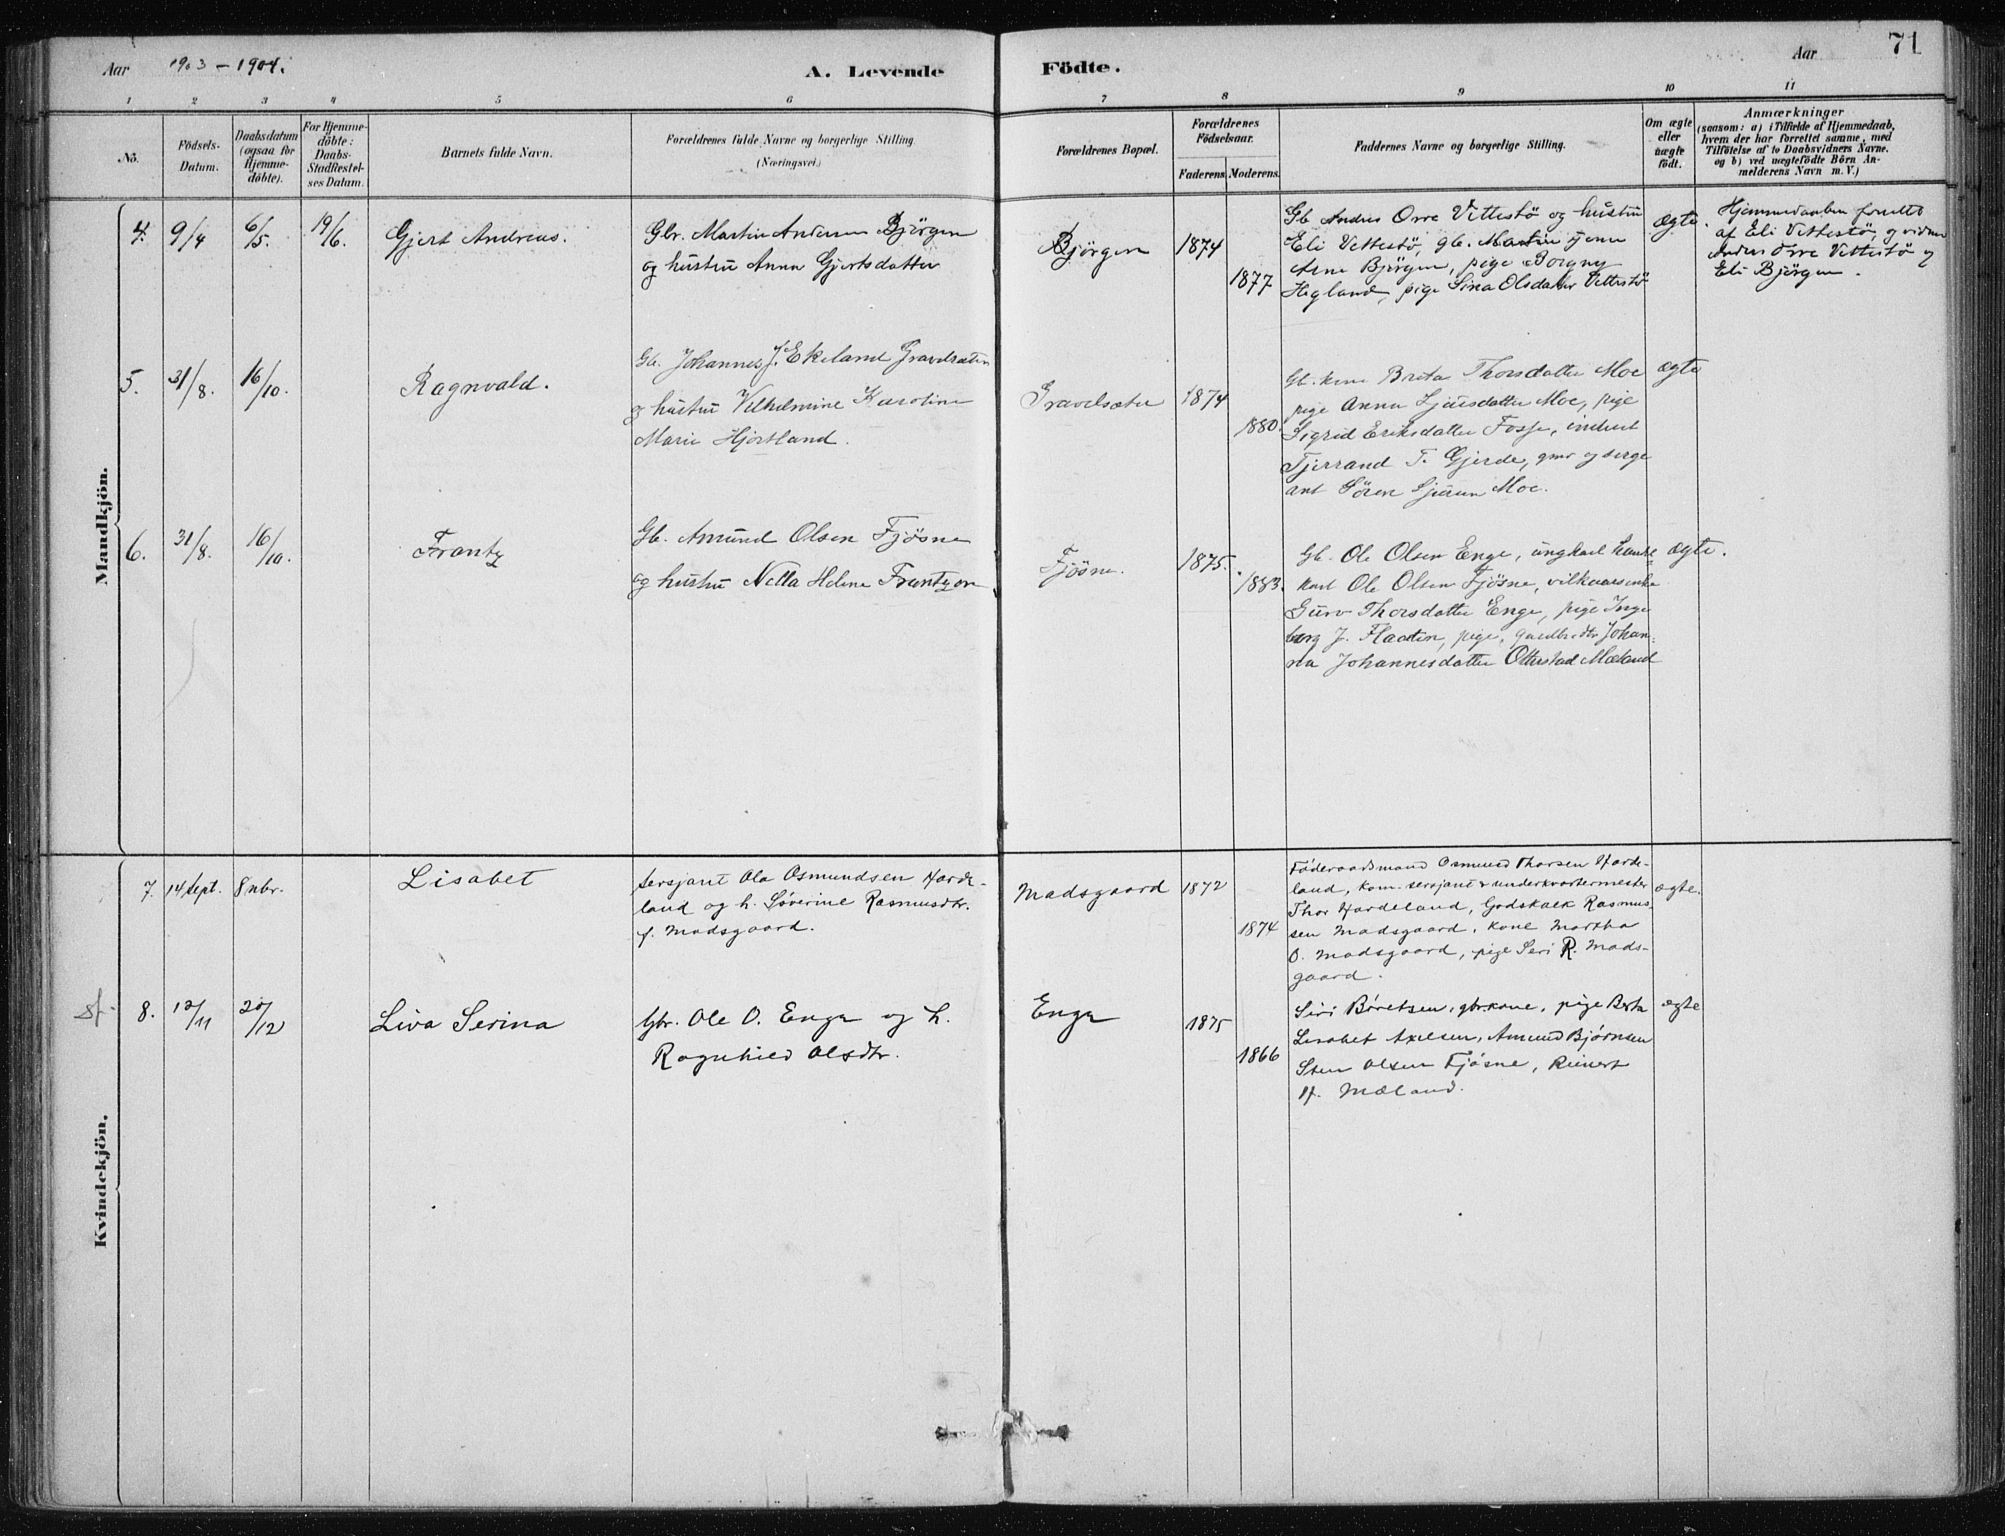 Aar 1903 – 1904.
A. Levende Födte.
Aar 71
1 2 3 4 5 6 7 8 9 10 11
No.
Födsels-Datum.
Daabsdatum (ogsaa for Hjemme-döbte).
For Hjemme-döbte: Daabs-Stadfæstel-ses Datum.
Barnets fulde Navn.
Forældrenes fulde Navne og borgerlige Stilling (Næringsvei.)
Forældrenes Bopæl.
Forældrenes Födselsaar.
Faderens. Moderens.
Faddernes Navne og borgerlige Stilling.
Om ægte eller uægte födt.
Anmærkninger
(saasom: a) i Tilfælde af Hjemmedaab,
hvem der har forrettet samme, med
Tilföielse af to Daabsvidners Navne.
og b) ved uægtefödte Börn An-
melderens Navn m. V.)
Mandkjön.
4. 9/4 6/5. 19/6. Gjert Andreas.
Gbr. Martin Andersen Björgen
og hustru Anna Gjertsdatter
Björgen 1874 1877
Gb Andres Orre Vettestö og hustru
Eli Vettestö, gb. Martin
Arne Björgen, pige Borgny
Hegland, pige Sina Olsdatter Vettestö
ægte
Hjemmedaaben forrettet
af Eli Vettestö, og vidner
Andres Orre Vettestö og
Eli Björgen.
5. 31/8. 16/10. Ragnvald.
Gb. Johannes J. Ekeland Gravelsæter
og hustru Vilhelmine Karoline
Marie Hjortland.
Gravelsæter 1874 1880.
Gb. kone Brita Thorsdatter Moe
pige Anna Sjursdatter Moe, pige
Sigrid Eriksdatter Fosse,
Tjerrand T. Gjerde, gmr og serge
ant Sören Sjursen Moe.
ægte
6. 31/8. 16/10. Frantz
Gb. Amund Olsen Fjösne
og hustru Netta Helene Frantzon
Fjösne. 1875. 1883.
Gb. Ole Olsen Enge, ungkarl
Ole Olsen Fjösne, vilkaarsenke
Guro Thorsdatter Enge, pige Inge
borg J. Flaaten, pige, Johan-
na Johannesdatter Otterstad Mæland
ægte.
Kvindekjön.
7. 14 Sept. 8 nbr. Lisabet
Sersjant Ola Osmundsen Harde-
land og h. Søverine Rasmusdtr.
f. Madsgaard.
Madsgaard 1872 1874
Føderaadsmand Osmund Thorsen Harde-
land, kom. sersjant & underkvartermester
Thor Hardeland, Godskalk Rasmus-
sen Madsgaard, kone Martha
O. Madsgaard, pige Seri R. Mads-
gaard.
ægte.
8. 12/11 20/12 Liva Serina
Gbr. Ole O. Enge og h.
Ragnhild Olsdtr.
Enge 1875 1866
Siri Børetsen, gbrkone, pige Berta
Lisabet Axelsen, Amund Bjørnsen
Sten Olsen Fjösne, Reinert
H. Mæland.
ægte